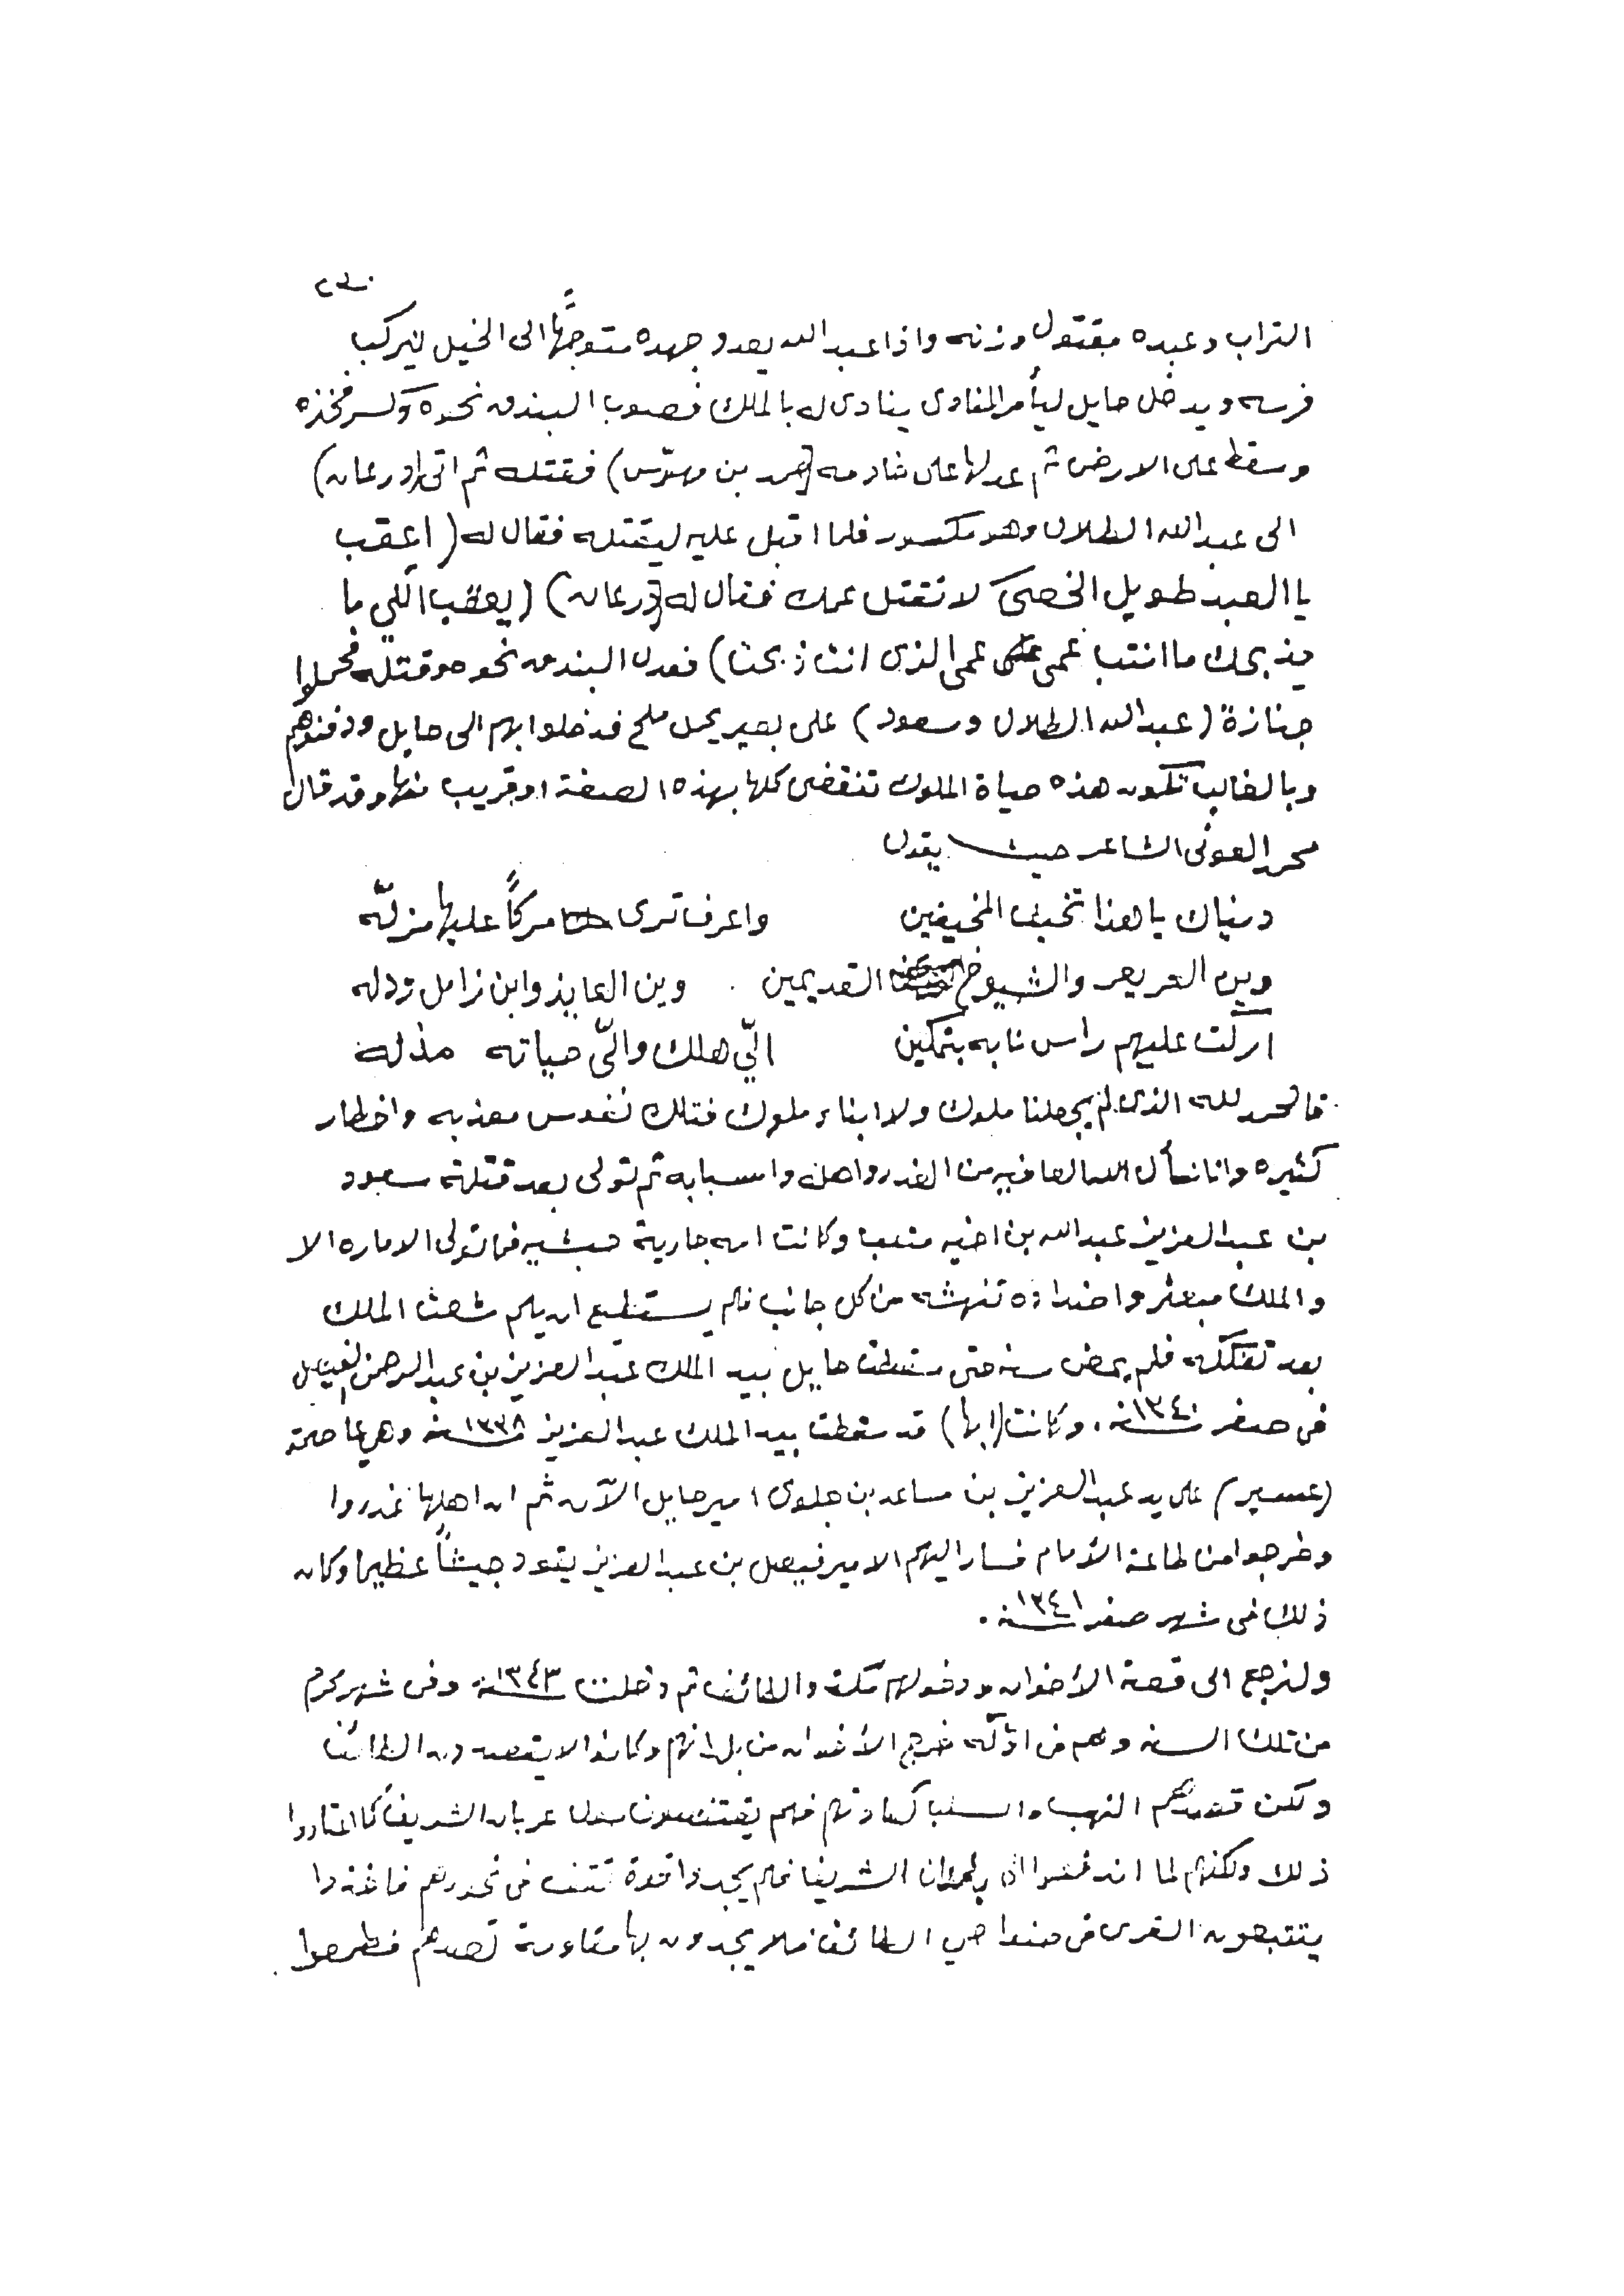 ٢٣٠
التراب وعبده مقتول وزنه واذا عبدالله يعدو جهده متوجهاً الى الخيل ليركب
فرسه ويدخل حايل ليأمر المنادى ينادى له بالملك فصوب البندق نحوه وكسر فخذه
وسقط على الارض ثم عدلها على خادمه (حمد بن مهوّس) فقتله ثم اتى (درعان)
الى عبدالله الطلال وهو مكسور فلما اقبل عليه ليقتله فقال له (اعقب
يا العبد طويل الخصى لا تقتل عمك فقال له (درعان) (يعقب اللّي ما
يذبحك ما انت عمى عمى الذى انت ذبحت) فعدل البندق نحوه وقتله فحملوا
جنازة (عبدالله الطلال وسعود) على بعير يحمل ملح فدخلوا بهم الى حايل ودفنوهم
وبالغالب تكون هذه حياة الملوك تنقضى كلها بهذه الصفة او قريب منها وقد قال
محمد العونى الشاعر حيث يقول
دنياك يا هذا تخيف المخيفين واعرف ترى مركاً عليها مزلّه
وين العريعر والشيوخ القديمين وين العايذ وابن زامل تدله
اركت عليهم راس نابه بتمكين الّي هلك والّى حياته مذله
فالحمد لله الذى لم يجعلنا ملوك ولا ابناء ملوك فتلك نفوس معذبه واخطار
كثيره وانا نسأل الله العافيه من الغدر واهله واسبابه ثم تولى بعد قتلة سعود
بن عبدالعزيز عبدالله بن اخيه متعب وكانت امه جارية حبشيه فما تولى الاماره الا
والملك مبعثر واضداده تنهشه من كل جانب فلم يستطع ان يلم شعث الملك
بعد تفككه فلم يمض سنه حتى سقطت حايل بيد الملك عبدالعزيز بن عبدالرحمن الفيصل
فى صفر سنة ١٣٤٠. وكانت (ابها) قد سقطت بيد الملك عبدالعزيز سنة ١٣٣٨ وهي عاصمة
(عسير) على يد عبدالعزيز بن مساعد بن جلوى امير حايل الآن ثم ان اهلها غدروا
وخرجوا من طاعة الأمام فسار اليهم الامير فيصل بن عبدالعزيز يقود جيشاً عظيما وكان
ذلك فى شهر صفر سنة ١٣٤١.
ولنرجع الى قصة الأخوان ودخولهم مكة والطائف ثم دخلت سنة ١٣٤٣ وفى شهر محرم
من تلك السنه وهم فى اوّله خرج الأخوان من بلدانهم وكانوا لا يقصدون الطائف
ولكن قصدهم النهب والسلب كعادتهم فهم يقتنصون عربان الشريف كما اعتادوا
ذلك ولكنهم لما اندفعوا الى بلدان الشريف فلم يجدوا قوة تقف فى نحورهم فاخذوا
يتتبعون القرى فى ضواحي الطائف فلا يجدون بها مقاومة تصدهم فطمعوا